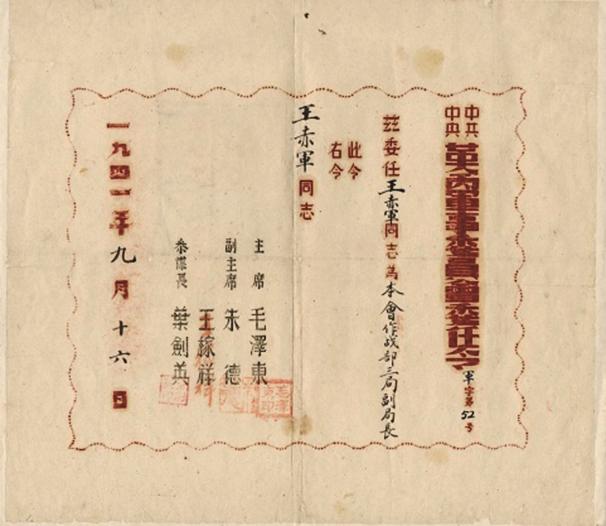 中共
中央
革命軍事委員會委任令 軍字第52号
茲委任王赤軍同志為本會作战部三局副局長
此令
右令
王赤軍同志
主席 毛澤東
副主席 朱德
王稼祥
参谋長 葉劍英
一九四一年九月十六日